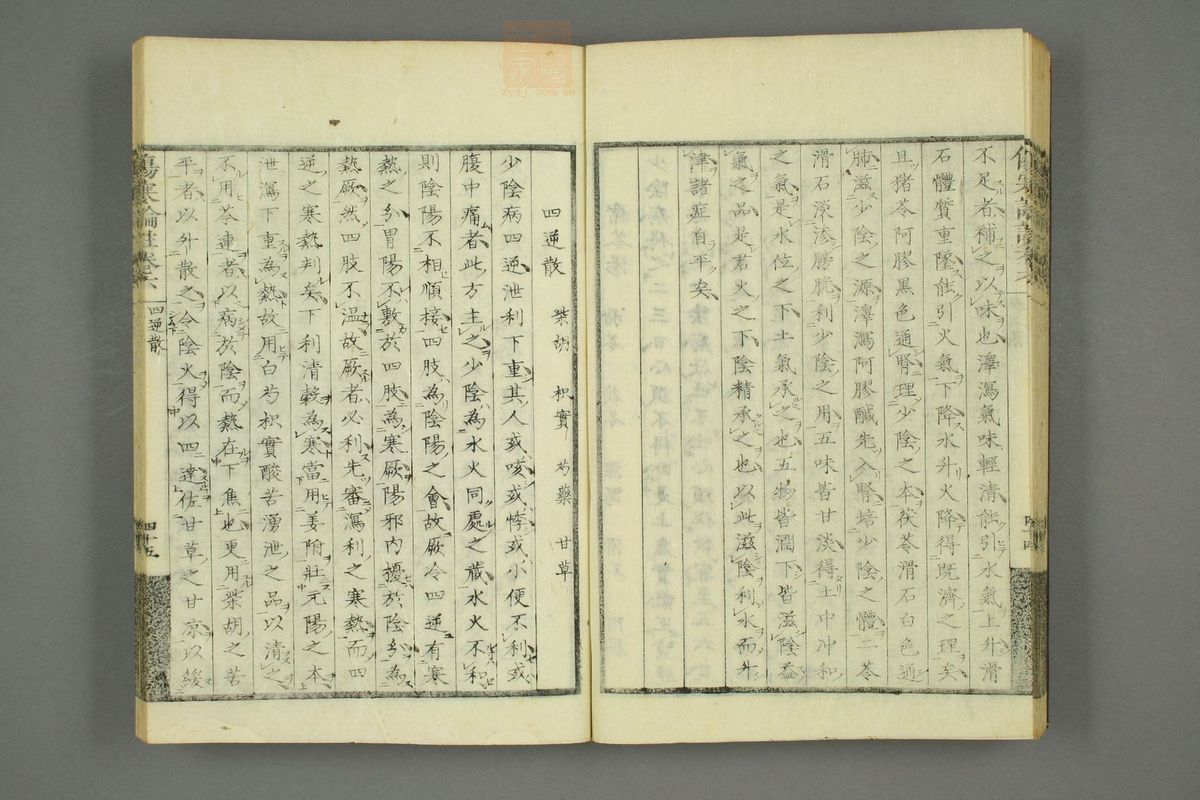 不足者補之以味也澤瀉氣味輕清能引水氣上升滑
石體質重墜能引火氣下降水升火降得既濟之理矣
且猪苓阿膠黑色通腎理少陰之本茯苓滑石白色通
肺滋少陰之源澤瀉阿膠鹹先入腎培少陰之體二苓
滑石淡滲膀胱利少陰之用五味皆甘淡得土中冲和
之氣是水位之下土氣承之也五物皆潤下皆滋陰益
氣之品是君火之下陰精承之也以此滋陰利水而升
津諸症自平矣
四逆散 柴胡 枳實 芍藥 甘草
少陰病四逆泄利下重其人或咳或悸或小便不利或
腹中痛者此方主之少陰為水火同處之藏水火不和
則陰陽不相順接四肢為陰陽之會故厥冷四逆有寒
熱之分胃陽不敷於四肢為寒厥陽邪内擾於陰分為
熱厥然四肢不温故厥者必利先審瀉利之寒熱而四
逆之寒熱判矣下利清穀為寒當用姜附壯元陽之本
泄瀉下重為熱故用白芍枳實酸苦湧泄之品以清之
不用芩連者以病於陰而熱在下焦也更用柴胡之苦
平者以升散之令陰火得以四達佐甘草之甘凉以緩
傷寒論註卷六
四逆散
四十五
四十四
zysj.com.cn